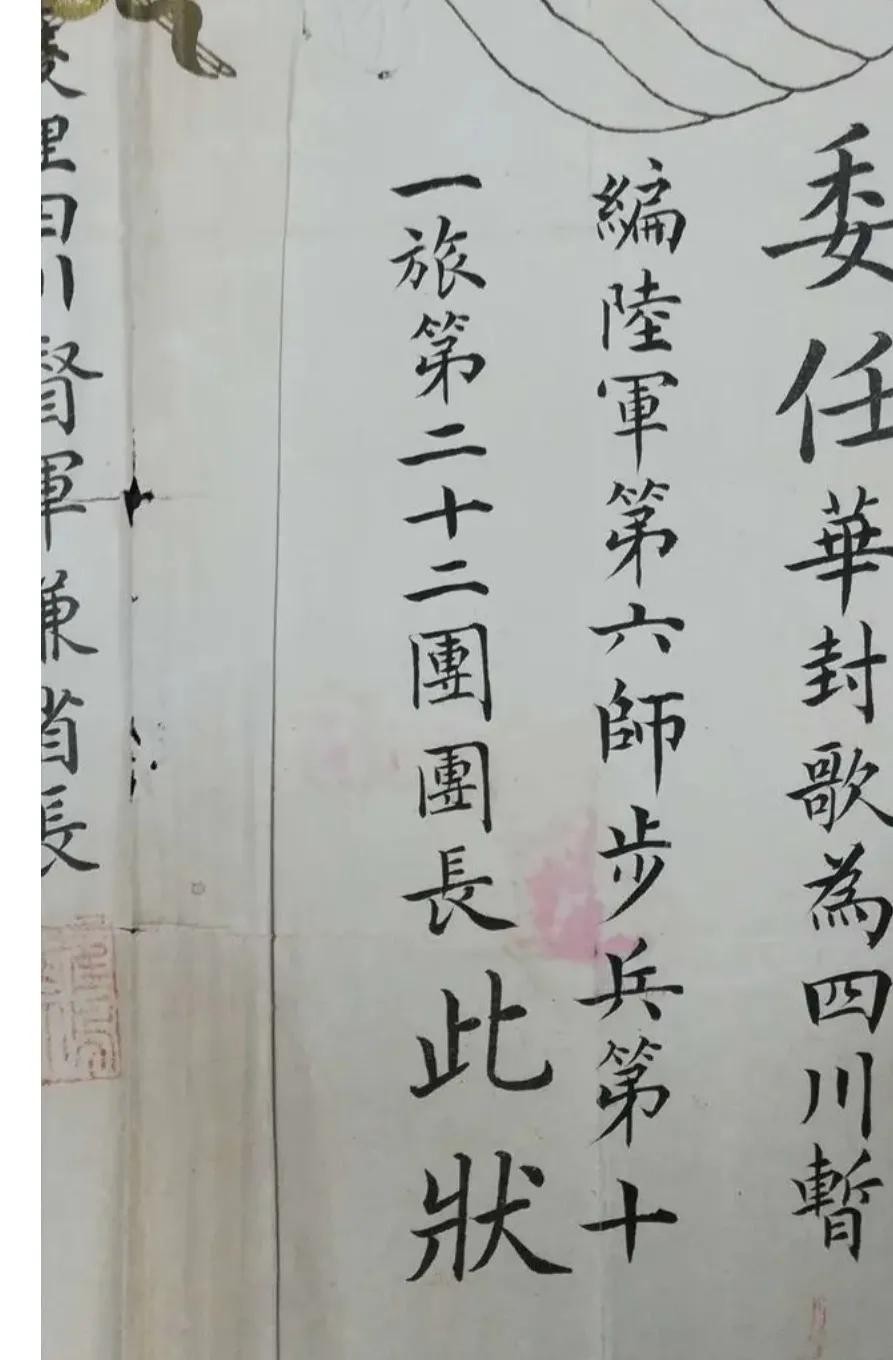 委任華封歌為四川暫
編陸軍第六師步兵第十
一旅第二十二團團長此狀
理四川督軍兼省長